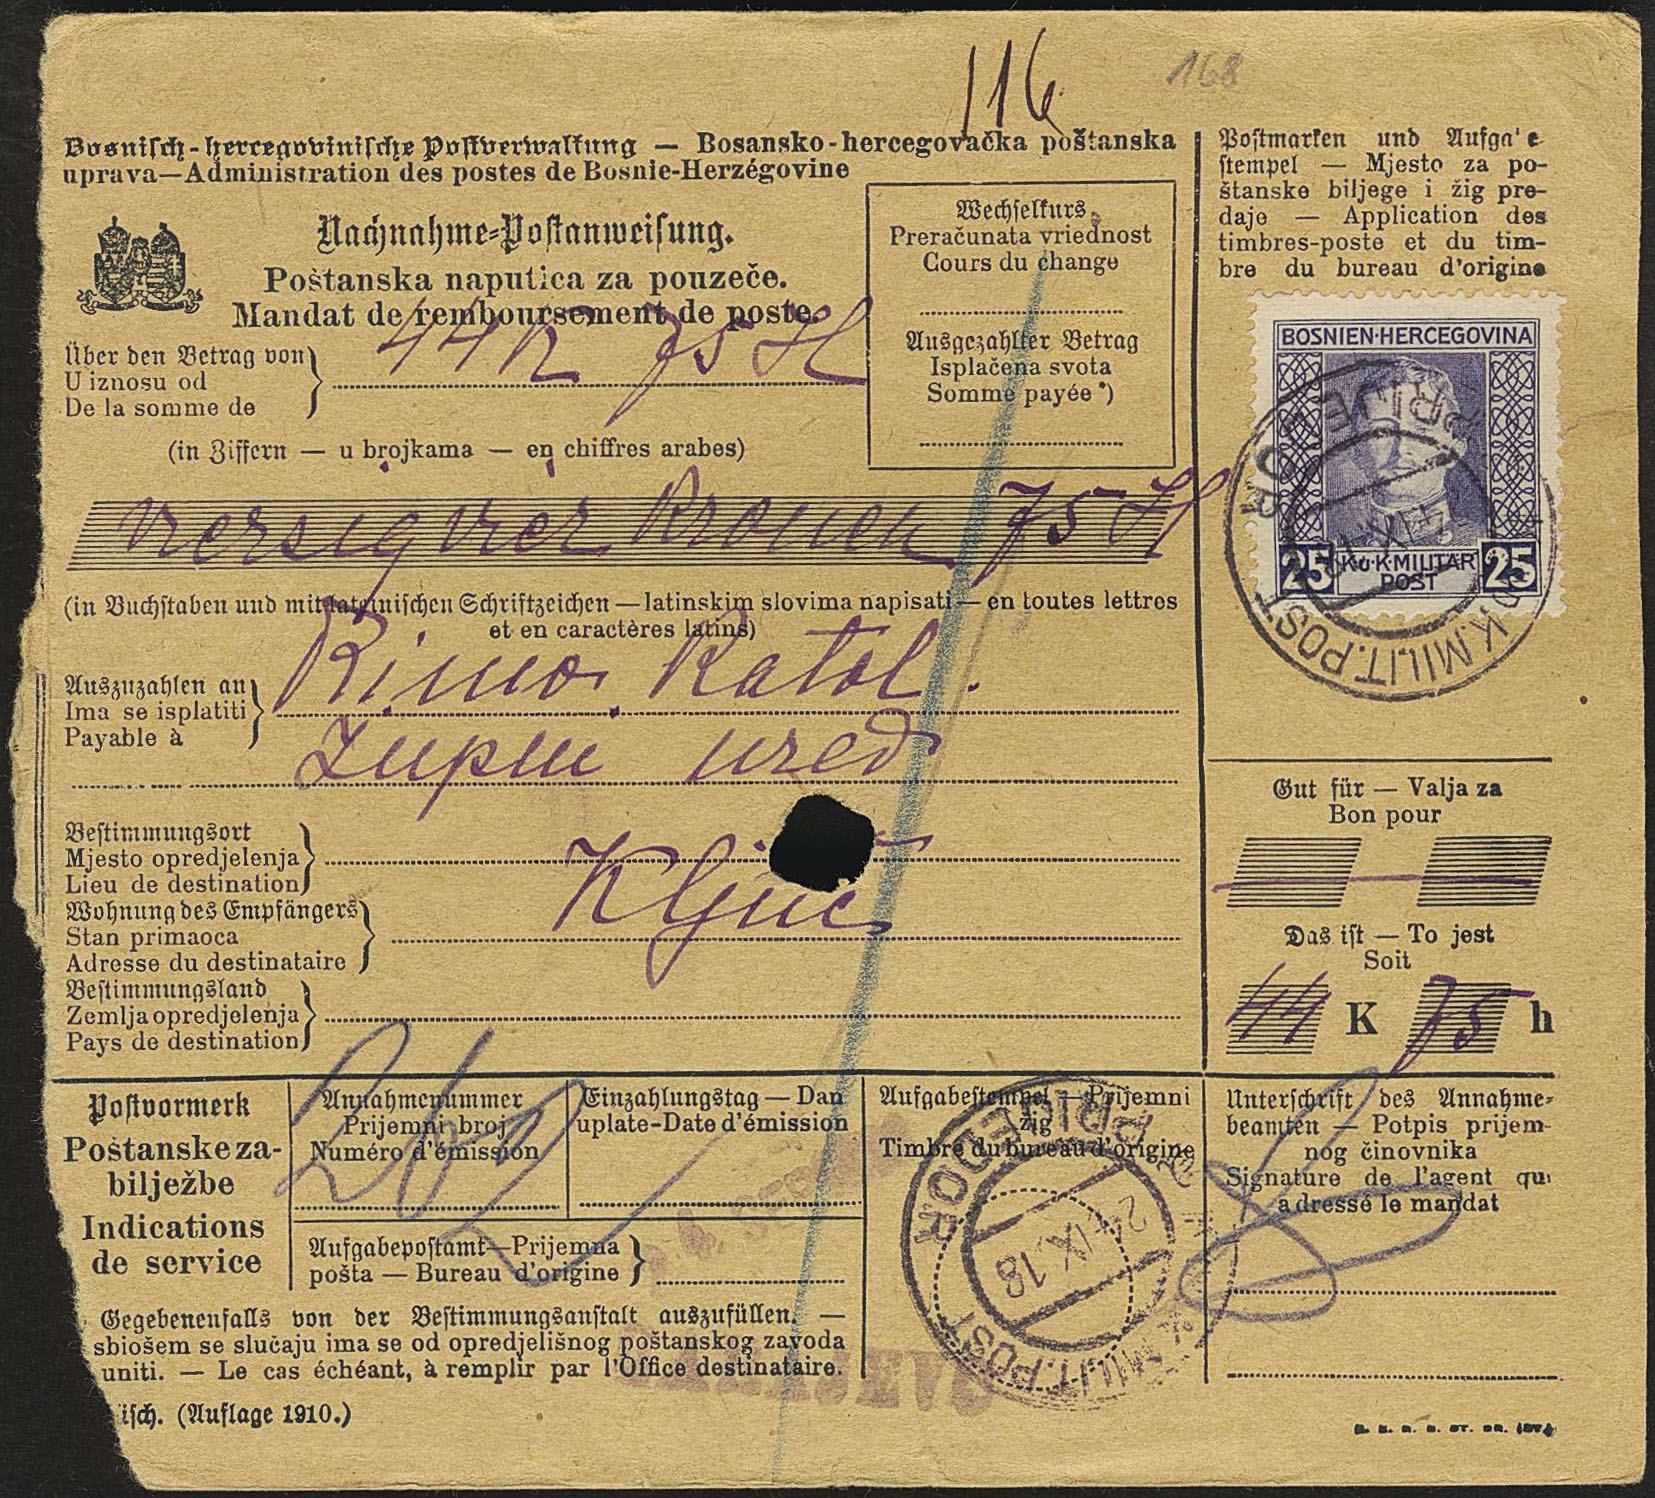 116
168
Bosnisch-hercegovinische Postverwaltung — Bosansko-hercegovačka poštanska
uprava—Administration des postes de Bosnie-Herzégovine
Nachnahme-Postanweisung.
Poštanska naputnica za pouzeče.
Mandat de remboursement de poste.
Über den Betrag von
U iznosu od
De la somme de
44 K 75 H
(in Ziffern — u brojkama — en chiffres arabes)
Wechselkurs
Preračunata vriednost
Cours du change
Ausgezahlter Betrag
Isplačena svota
Somme payée *)
Postmarken und Aufga e
stempel — Mjesto za po-
štanske biljege i žig pre-
daje — Application des
timbres-poste et du tim-
bre du bureau d'origine
BOSNIEN·HERCEGOVINA
25 K.u.K.MILITÄR 25
POST
K.MILIT.POST
PRIJEDOR
versigvier Kronen 75 H
(in Buchstaben und mit lateinischen Schriftzeichen — latinskim slovima napisati — en toutes lettres
et en caractères latins)
Auszuzahlen an
Ima se isplatiti
Payable à
Rimo. Katol.
župni ured
Bestimmungsort
Mjesto opredjelenja
Lieu de destination
Ključ
Wohnung des Empfängers
Stan primaoca
Adresse du destinataire
Bestimmungsland
Zemlja opredjelenja
Pays de destination
Gut für — Valja za
Bon pour
Das ist — To jest
Soit
44 K 75 h
Postvormerk
Poštanske za-
bilježbe
Indications
de service
Annahmenummer
Prijemni broj
Numéro d'émission
Einzahlungstag — Dan
uplate-Date d'émission
Aufgabepostamt—Prijemna
pošta — Bureau d'origine
Aufgabestempel — Prijemni
žig
Timbre du bureau d'origine
PRIJEDOR
24 IX 18
MILIT.POST
Unterschrift des Annahme-
beamten — Potpis prijem-
nog činovnika
Signature de l'agent qui
adressé le mandat
Gegebenenfalls von der Bestimmungsanstalt auszufüllen. —
sbiošem se slučaju ima se od opredjelišnog poštanskog zavoda
uniti. — Le cas échéant, à remplir par l'Office destinataire.
isch. (Auflage 1910.)